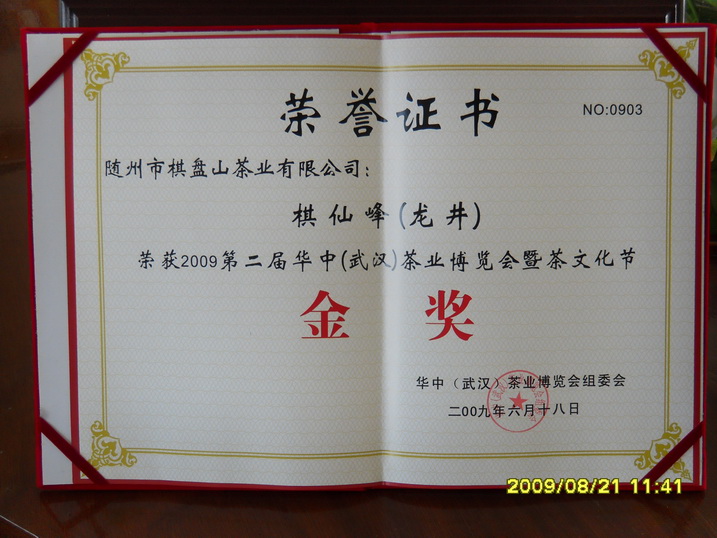 荣誉证书
NO:0903
随州市棋盘山茶业有限公司：
棋仙峰(龙井)
荣获2009第二届华中(武汉)茶业博览会暨茶文化节
金奖
华中（武汉）茶业博览会组委会
二00九年六月十八日
2009/08/21 11:41